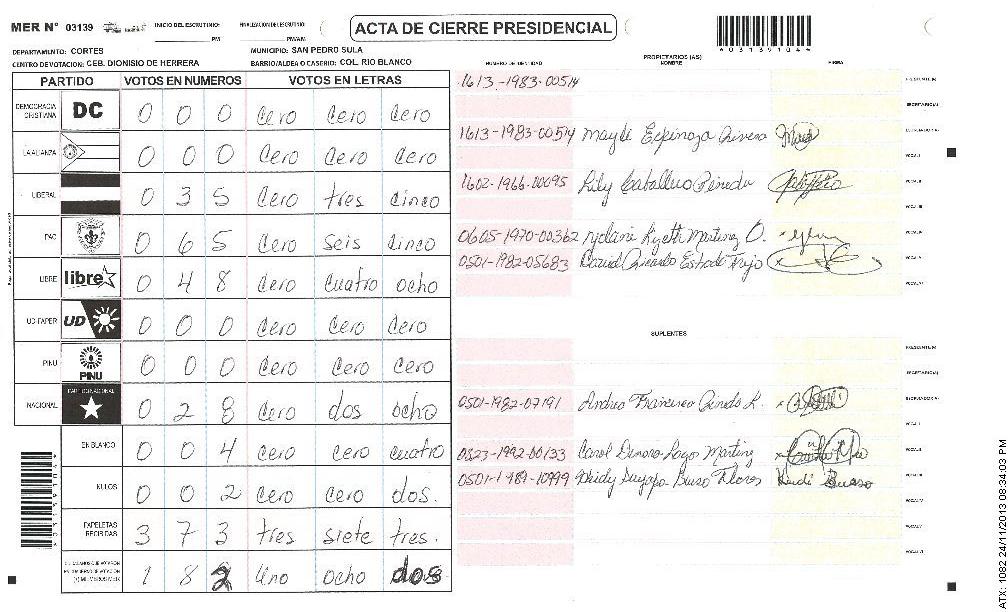 MER N° 03139
INICIO DEL ESCRUTINIO: PM
FINALIZACION DE ESCRUTINIO: PM/AM
ACTA DE CIERRE PRESIDENCIAL
4031391044
DEPARTAMENTO: CORTES
MUNICIPIO: SAN PEDRO SULA
CENTRO DE VOTACION: CEB. DIONISIO DE HERRERA
BARRIO/ALDEA O CASERIO: COL. RIO BLANCO
PARTIDO VOTOS EN NUMEROS VOTOS EN LETRAS
DEMOCRACIA CRISTIANA DC 0 0 0 Cero Cero Cero
LA ALIANZA 0 0 0 Cero Cero Cero
LIBERAL 0 3 5 Cero tres Cinco
PAC 0 6 5 Cero Seis Cinco
LIBRE libre 0 4 8 Cero Cuatro Ocho
UD-FAPER UD 0 0 0 Cero Cero Cero
PINU PINU 0 0 0 Cero Cero Cero
NACIONAL PARTIDO NACIONAL 0 2 8 Cero dos Ocho
EN BLANCO 0 0 4 Cero Cero Cuatro
NULOS 0 0 2 Cero Cero dos.
PAPELETAS RECIBIDAS 3 7 3 tres siete tres.
1 8 2 Uno ocho dos
NUMERO DE IDENTIDAD
PROPIETARIOS (AS)
NOMBRE
FIRMA
1613-1983-00514
PRESIDENTE(A)
SECRETARIO(A)
1613-1983-00514 Maydi Espinoza Rivera
ESCRUTADOR(A)
VOCAL I
1602-1966-00095 Lily Caballero Pineda
VOCAL II
VOCAL III
0605-1970-00362 Lizeth Martinez O.
VOCAL IV
0501-1982-05683 David Ricardo
VOCAL V
VOCAL VI
SUPLENTES
PRESIDENTE(A)
SECRETARIO(A)
0501-1982-07191 Andrea Francisca Pineda L.
ESCRUTADOR(A)
VOCAL I
0823-1992-00133 Carol Martinez
VOCAL II
0501-1989-10999 Flores
VOCAL III
VOCAL IV
VOCAL V
VOCAL VI
ATX: 1082 24/11/2013 08:34:03 PM